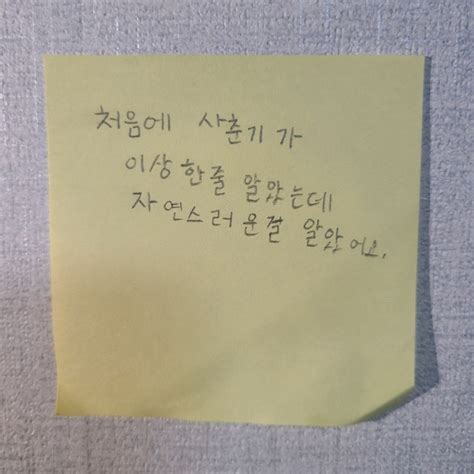 처음에 사춘기가
이상한줄 알았는데
자연스러운걸 알았어요.